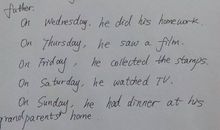 father.
On Wednesday, he did his homework.
On Thursday, he saw a film.
On Friday, he collected the stamps.
On Saturday, he watched TV.
On Sunday, he had dinner at his
grandparents' home.